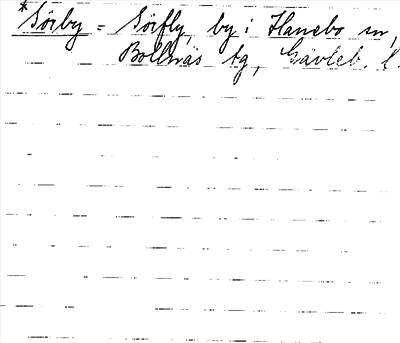 *Sörby = Sörfly, by i Hanebo sn,
Bollnäs tg, Gävleb. l.